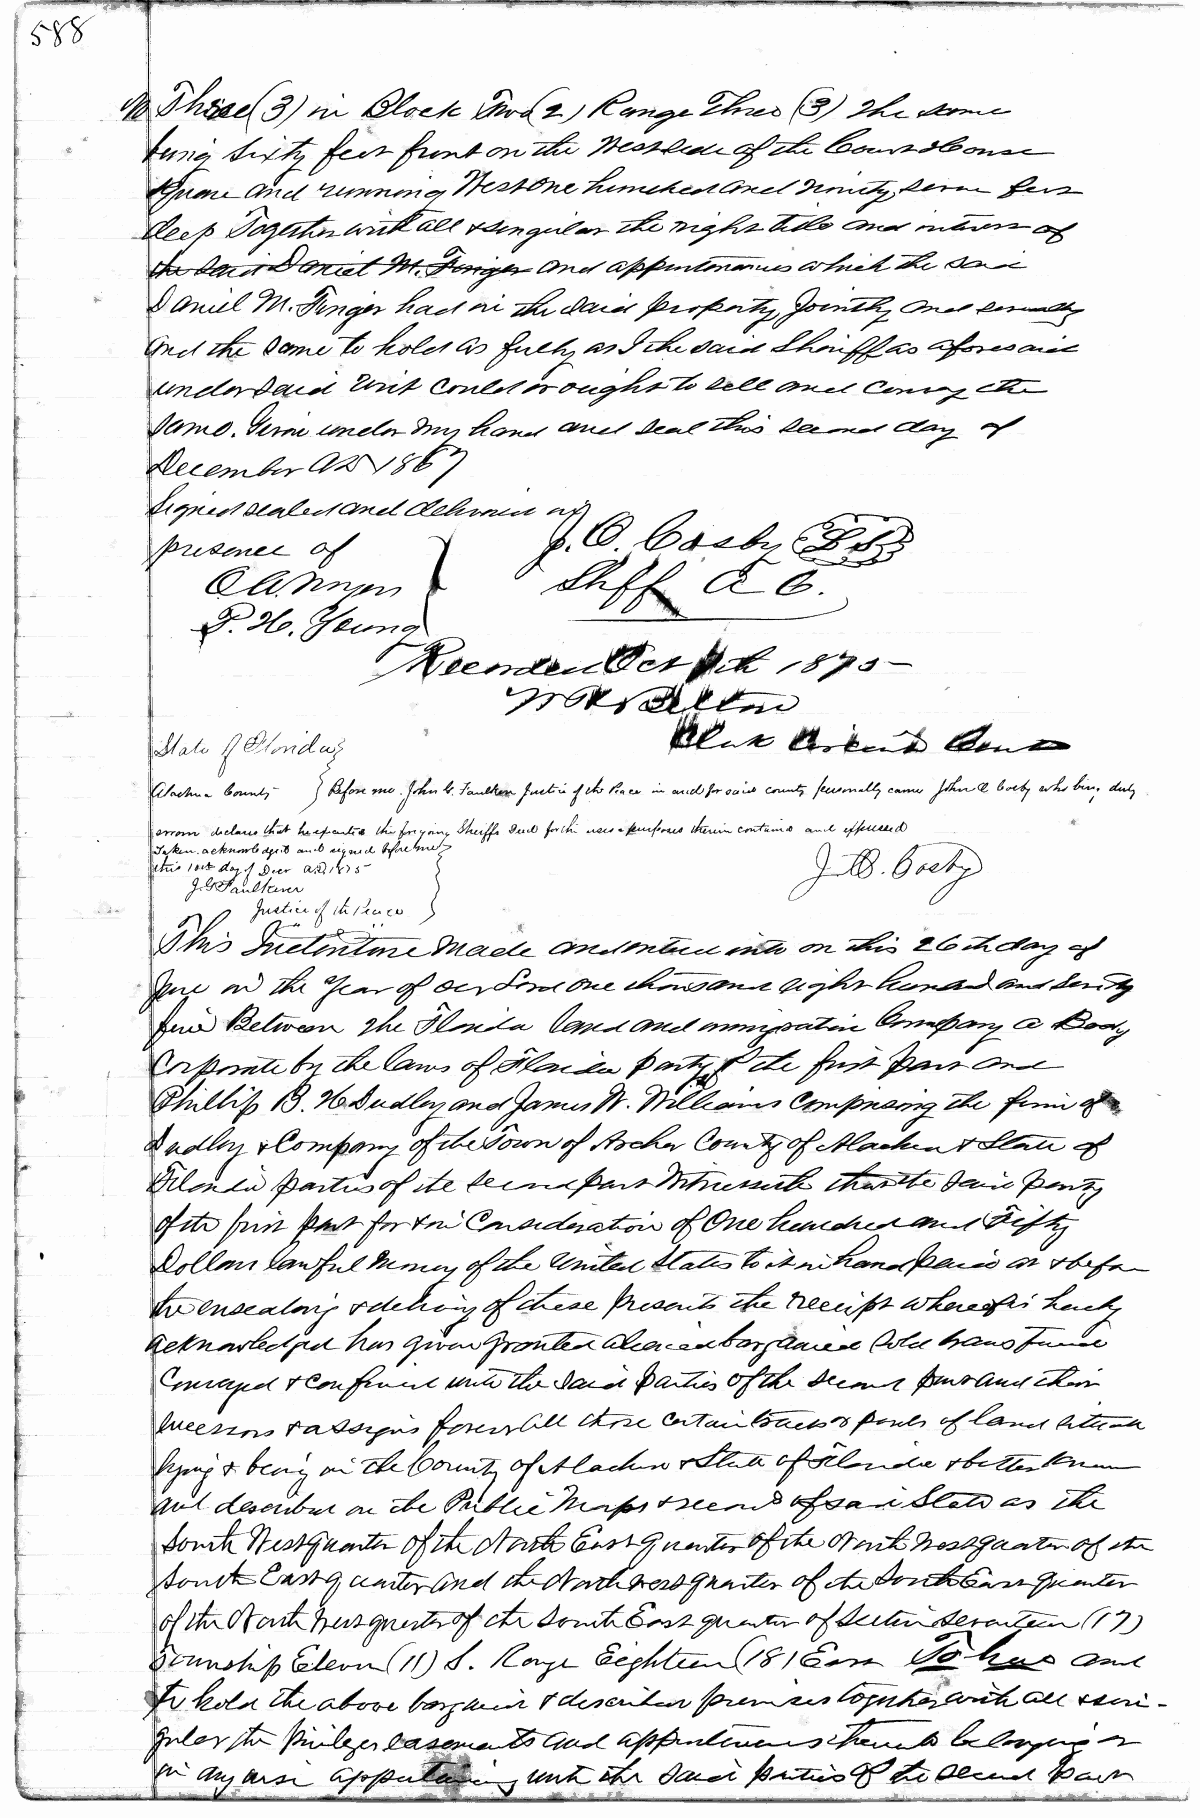 588
No Three (3) in Block Two (2) Range Three (3) the same
being Sixty feet front on the West side of the Court House
Square and running West one hundred and ninety seven feet
deep Together with all & singular the right title and interest of
the said Daniel M. Finger and appurtenances which the said
Daniel M. Finger had in the said property jointly and severally
and the same to hold as fully as I the said Sheriff as aforesaid
under said writ could or ought to sell and convey the
same. Given under my hand and seal this second day of
December AD 1867
Signed sealed and delivered in
presence of
J. C. Cosby LS
Shff A C.
P. H. Young
Recorded Oct th 1875
Clerk Circuit Court
State of Florida
Alachua County } Before me. John G. Faulkner Justice of the Peace in and for said county personally came John C Cosby who being duly
sworn declares that he executed the foregoing Sheriffs Deed for the uses & purposes therein contained and expressed
Taken acknowledged and signed before me
this 10th day of Decr AD 1875
J. C. Cosby
J. G. Faulkner
Justice of the Peace
This Indenture Made and entered into on this 26th day of
June in the Year of our Lord one thousand eight hundred and seventy
five Between the Florida Land and immigration Company a Body
Corporate by the laws of Florida party of the first part and
Phillip B. H. Dudley and James W. Williams Comprising the firm of
Dudley & Company of the Town of Archer County of Alachua & State of
Florida parties of the second part Witnesseth that the said party
of the first part for & in Consideration of One hundred and Fifty
Dollars lawful money of the United States to it in hand paid at & before
the ensealing & delivery of these presents the receipt whereof is hereby
acknowledged has given granted aliened bargained sold transferred
Conveyed & confirmed unto the said parties of the second part and their
successors & assigns forever all those certain tracts or parcels of land situate
lying & being in the County of Alachua & State of Florida & better known
and described on the Public Maps & records of said State as the
South West quarter of the North East quarter of the North West quarter of the
South East quarter and the North West quarter of the South East quarter
of the North West quarter of the South East quarter of Section Seventeen (17)
Township Eleven (11) S. Range Eighteen (18) East To have and
to hold the above bargained & described premises together with all & sin-
gular the privileges easements and appurtenances thereunto belonging or
in any wise appertaining unto the said parties of the second part